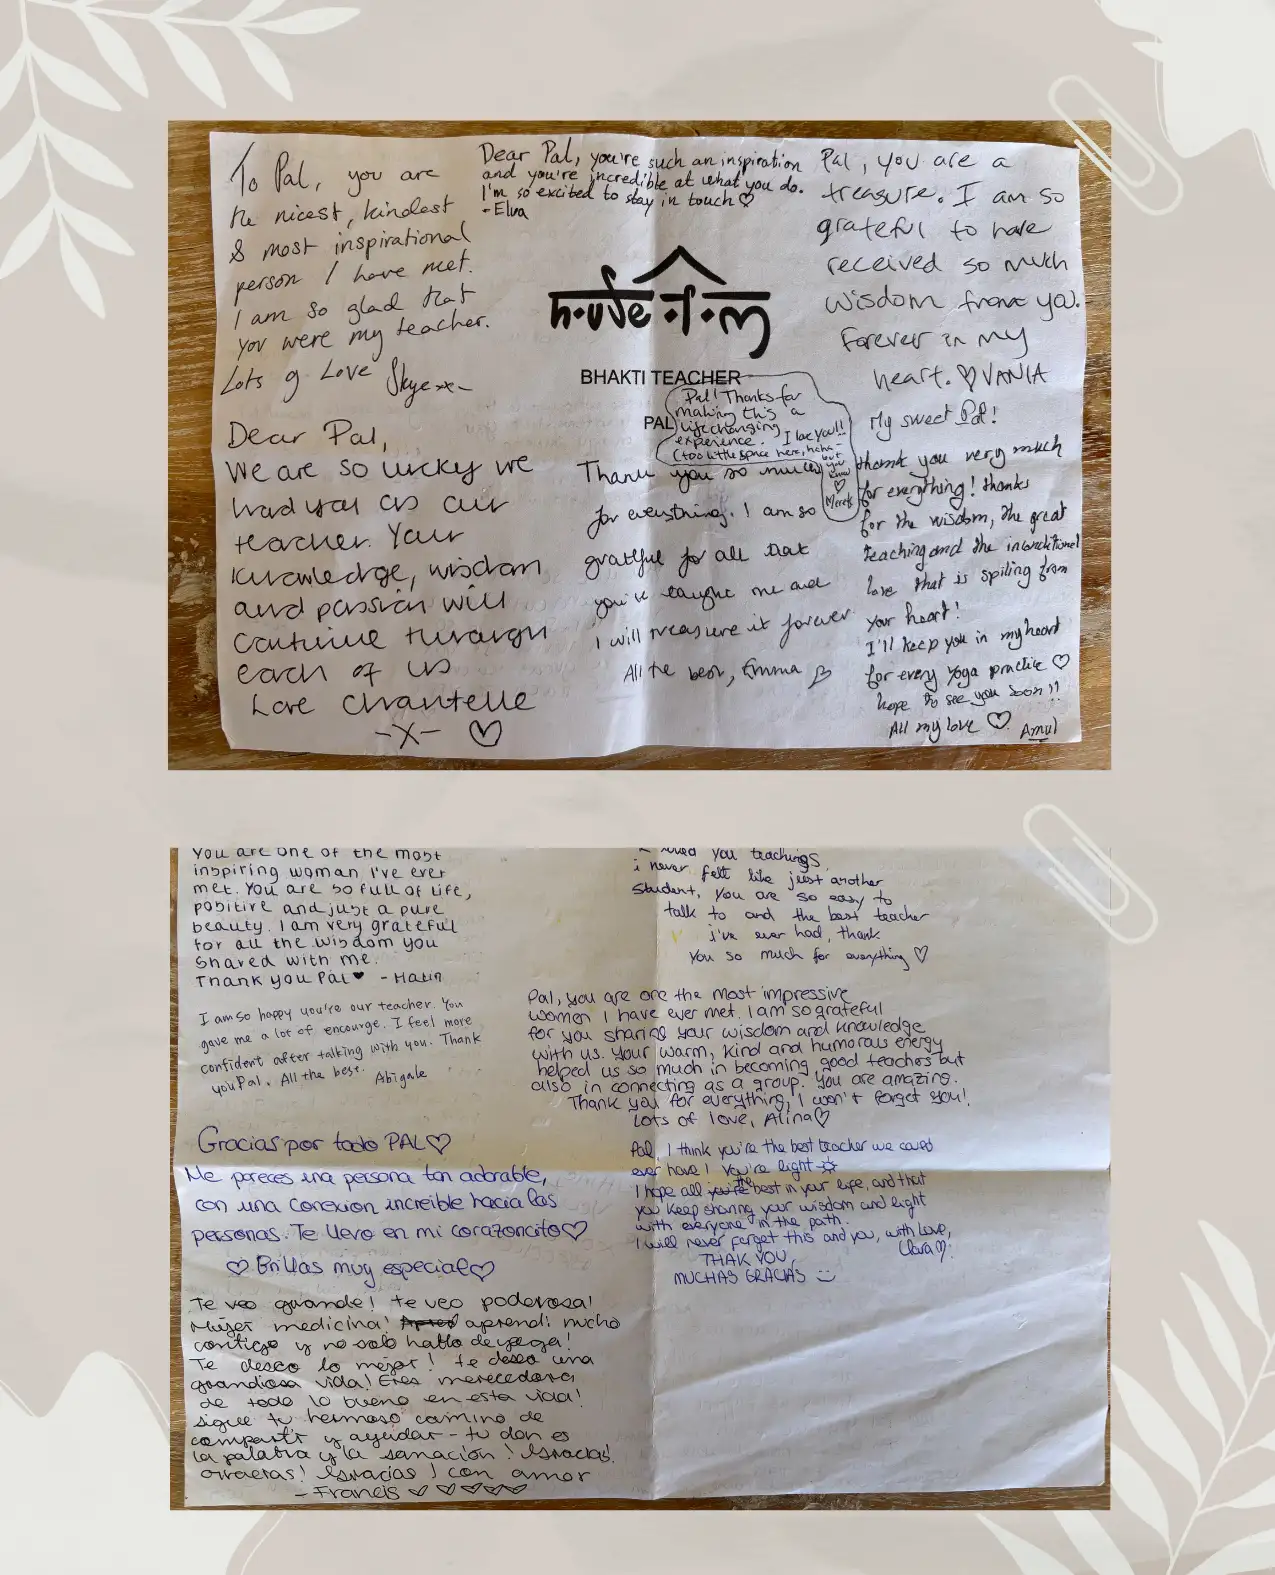 To Pal, you are
the nicest, kindest
& most inspirational
person I have met.
I am so glad that
you were my teacher.
Lots of Love Skye x-
Dear Pal, you're such an inspiration
and you're incredible at what you do.
I'm so excited to stay in touch ♡
- Elva
Pal, you are a
treasure. I am so
grateful to have
received so much
wisdom from you.
Forever in my
heart. ♡ VANIA
house of om
BHAKTI TEACHER
PAL
Pal! Thanks for
making this a
life changing
experience. I love you!!
(too little space here, haha -
but you
know
♡
Dear Pal,
We are so lucky we
had you as our
teacher. Your
knowledge, wisdom
and passion will
continue through
each of us
Love Chantelle
-X- ♡
Thank you so much
for everything. I am so
grateful for all that
you've taught me and
I will treasure it forever
All the best, Emma
My sweet Pal!
thank you very much
for everything! thanks
for the wisdom, the great
teaching and the inconditional
love that is spiling from
your heart!
I'll keep you in my heart
for every yoga practice ♡
hope to see you soon!!
All my love ♡ Amul
You are one of the most
inspiring woman I've ever
met. You are so full of life,
positive and just a pure
beauty. I am very grateful
for all the wisdom you
shared with me.
Thank you Pal ♥ -
I am so happy you're our teacher. You
gave me a lot of encourge. I feel more
confident after talking with you. Thank
you Pal. All the best. Abigale
Gracias por todo PAL ♡
Me pareces una persona tan adorable,
con una conexion increible hacia las
personas. Te llevo en mi corazoncito ♡
♡ Brillas muy especial ♡
Te veo grande! te veo poderosa!
Mujer medicina! aprendi mucho
contigo y no solo hablo de yoga!
Te deseo lo mejor! te deseo una
grandiosa vida! Eres merecedora
de todo lo bueno en esta vida!
sigue tu hermoso camino de
compartir y ayudar - tu don es
la palabra y la sanación! Gracias!
Gracias! Gracias! con amor
- Francis ♡ ♡ ♡ ♡ ♡
you teachings
i never felt like just another
student, you are so easy to
talk to and the best teacher
i've ever had, thank
you so much for everything ♡
Pal, you are one the most impressive
women I have ever met. I am so grateful
for you sharing your wisdom and knowledge
with us. Your warm, kind and humorous energy
helped us so much in becoming good teachers but
also in connecting as a group. You are amazing.
Thank you for everything, I won't forget you!
Lots of love, Alina ♡
Pal, I think you're the best teacher we could
ever have! You're light
I hope all the best in your life, and that
you keep sharing your wisdom and light
with everyone in the path.
I will never forget this and you, with love,
Clara ♡!
THAK YOU,
MUCHAS GRACIAS